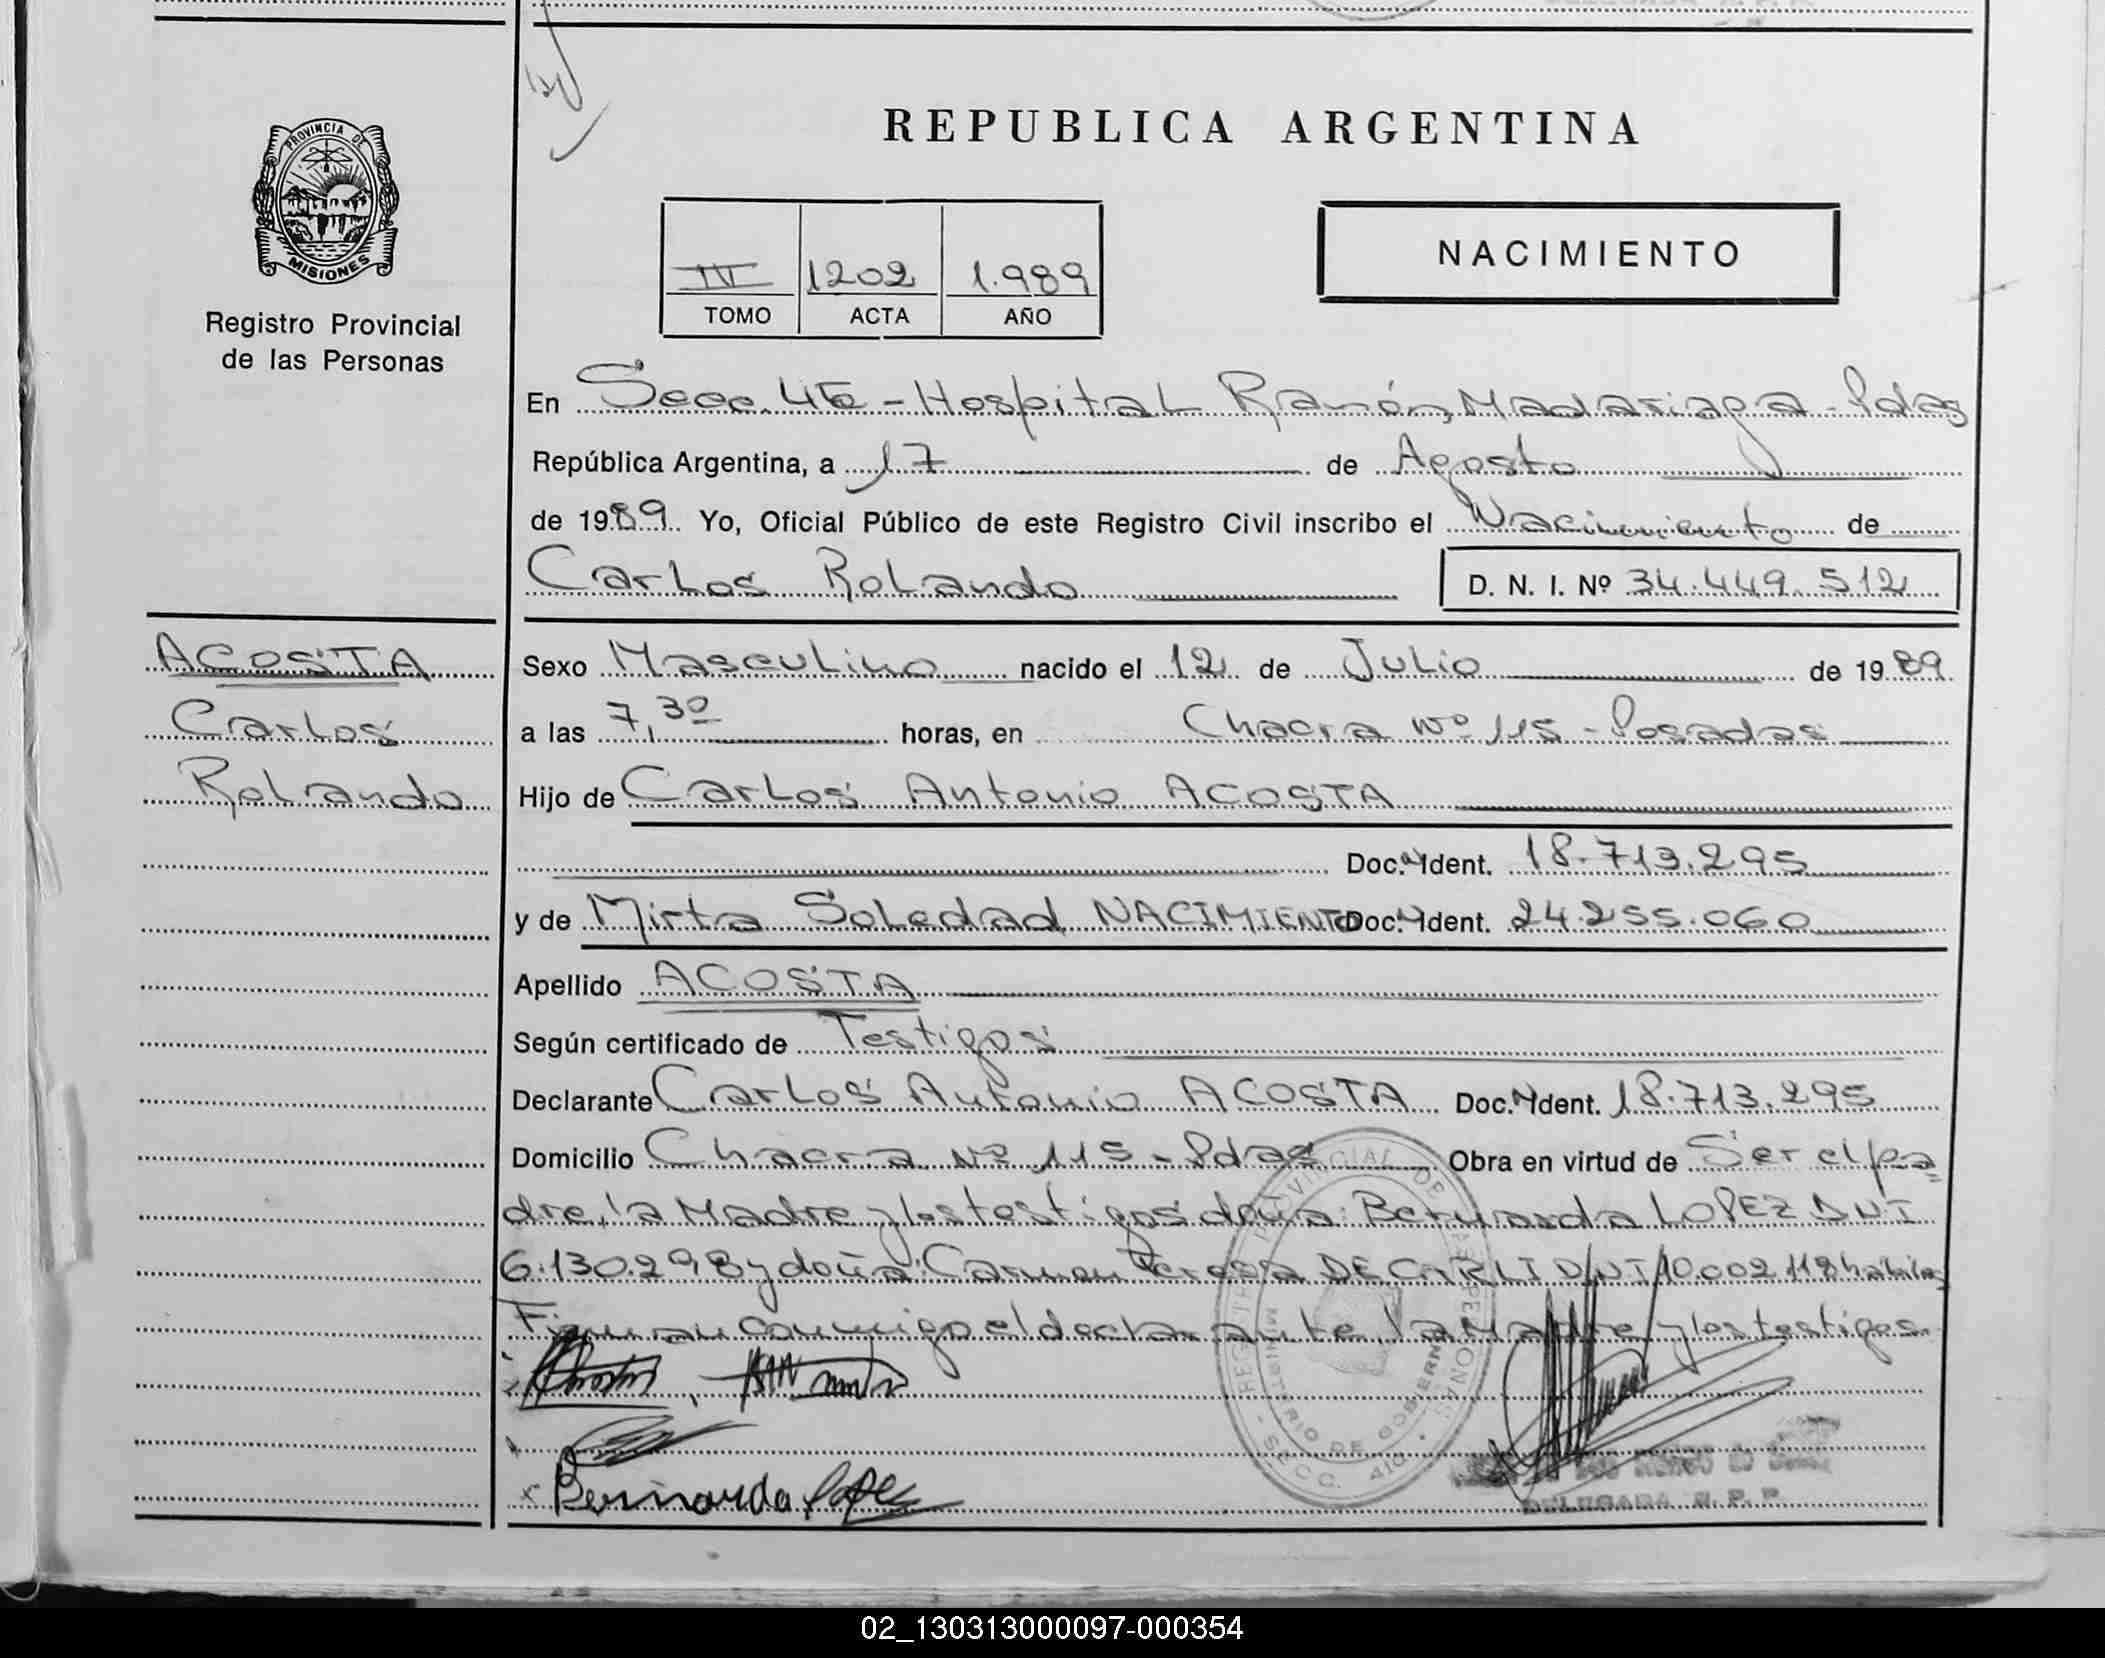 REPUBLICA ARGENTINA
PROVINCIA DE
MISIONES
Registro Provincial
de las Personas
NACIMIENTO
IV 1202 1.989
TOMO ACTA AÑO
En Secc. 4ta - Hospital Ramón Madariaga - Pdas
República Argentina, a 17 de Agosto
de 1989 Yo, Oficial Público de este Registro Civil inscribo el Nacimiento de
Carlos Rolando D. N. I. Nº 34.449.512
ACOSTA
Carlos
Rolando
Sexo Masculino nacido el 12 de Julio de 1989
a las 7,30 horas, en Chacra Nº 115 - Posadas
Hijo de Carlos Antonio ACOSTA
Doc. Ident. 18.713.295
y de Mirta Soledad NACIMIENTO Doc. Ident. 24.255.060
Apellido ACOSTA
Según certificado de Testigos
Declarante Carlos Antonio ACOSTA Doc. Ident. 18.713.295
Domicilio Chacra Nº 115 - Pdas Obra en virtud de Ser el pa=
dre, la Madre y los testigos doña: Bernarda LOPEZ DNI
6.130.298 y doña: Carmen Teresa DE CARLI DNI 10.002.118 habiles
Firman conmigo el declarante la Madre y los testigos.
Bernarda Lopez
REGISTRO PROVINCIAL DE LAS PERSONAS
MINISTERIO DE GOBIERNO
SECC. 410
DELEGADA R. P. P.
02_130313000097-000354